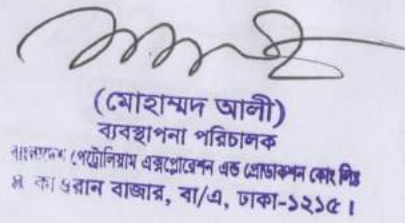 (মোহাম্মদ আলী)
ব্যবস্থাপনা পরিচালক
বাংলাদেশ পেট্রোলিয়াম এক্সপ্লোরেশন এন্ড প্রোডাকশন কোং লিঃ
কাওরান বাজার, বা/এ, ঢাকা-১২১৫।